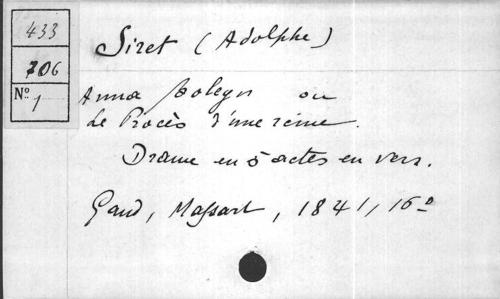 433
706
N° 1
Siret (Adolphe)
Anna Boleyn ou
Le Procès d'une reine.
Drame en 5 actes en vers.
Gand, Massart, 1841, 16°